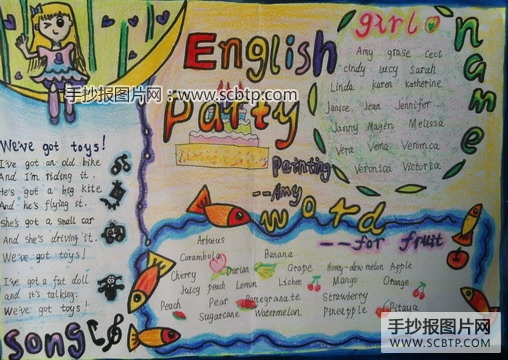 English
Party
Painting
--Amy
手抄报图片网
www.scbtp.com
girl
name
Amy grase Ceci
cindy Lucy Sarah
Linda karen Katherine
Janice Jean Jennifer
Janny Magen Melissa
Vera Vena Veronica
Veronica Victoria
We've got toys!
I've got an old bike
And I'm riding it.
He's got a big kite
And he's flying it.
She's got a small car
And she's driving it.
We've got toys!
I've got a fat doll
and it's talking.
We've got toys!
song
word
--for fruit
Arbeus
Carambola Banana
Cherry Durian Grape Honey-dew melon Apple
Juicy peach Lemon Lichee Mango Orange
Peach Pear Pomegranate Strawberry
Sugarcane Watermelon Pineapple Pitaya
手抄报图片网
WWW.SCBTP.COM